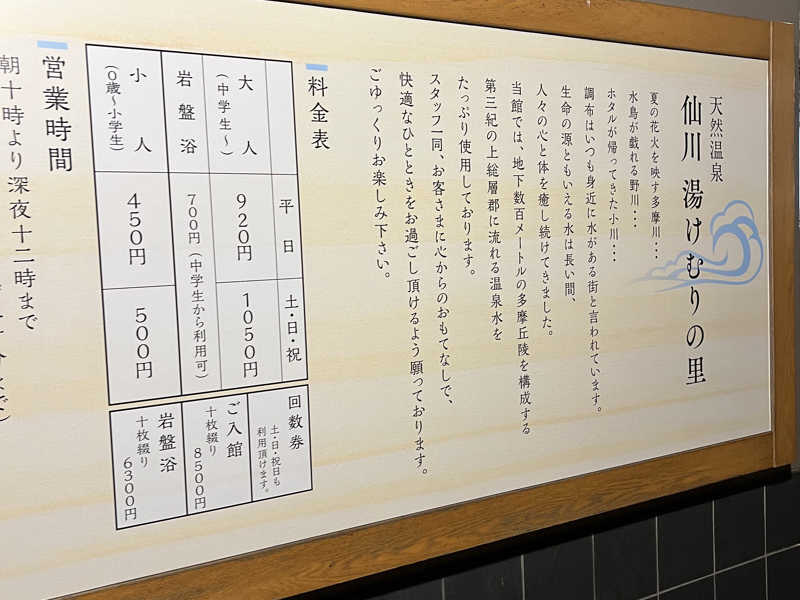 天然温泉
仙川 湯けむりの里
夏の花火を映す多摩川・・・
水鳥が戯れる野川・・・
ホタルが帰ってきた小川・・・
調布はいつも身近に水がある街と言われています。
生命の源ともいえる水は長い間、
人々の心と体を癒し続けてきました。
当館では、地下数百メートルの多摩丘陵を構成する
第三紀の上総層郡に流れる温泉水を
たっぷり使用しております。
スタッフ一同、お客さまに心からのおもてなしで、
快適なひとときをお過ごし頂けるよう願っております。
ごゆっくりお楽しみ下さい。
料金表
平日
土・日・祝
大人
(中学生〜)
920円
1050円
岩盤浴
700円(中学生から利用可)
小人
(0歳〜小学生)
450円
500円
回数券
土・日・祝日も
利用頂けます。
ご入館
十枚綴り
8500円
岩盤浴
十枚綴り
6300円
営業時間
朝十時より深夜十二時まで